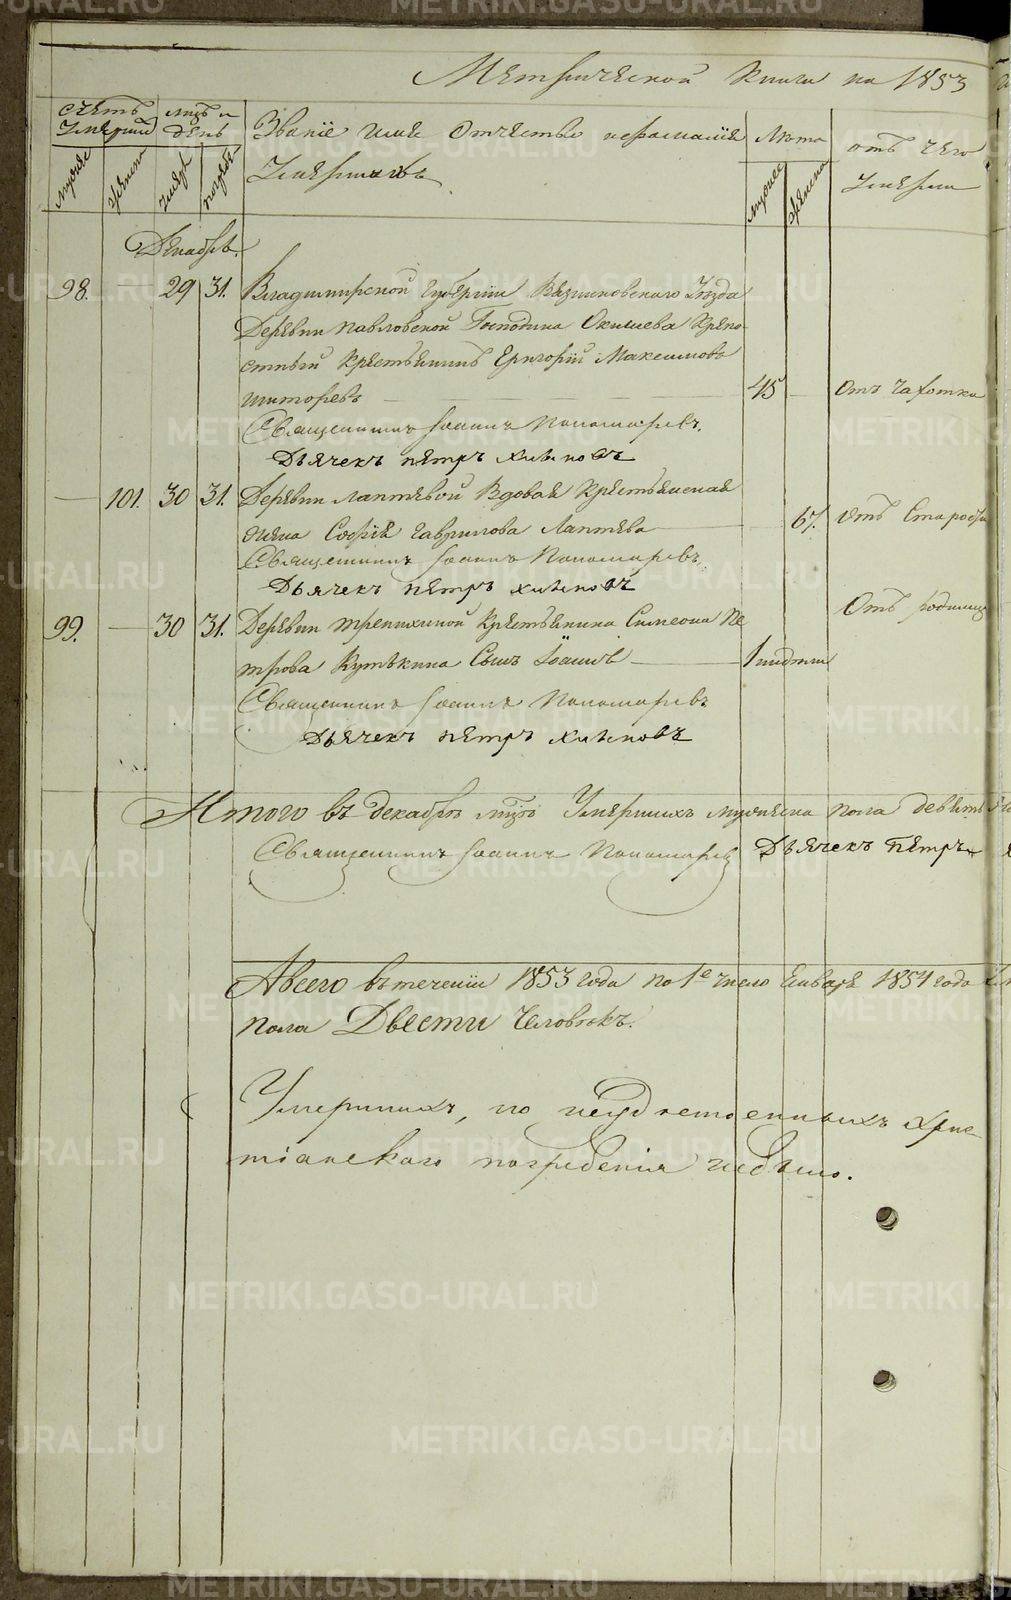 Метрической книги на 1853
счетъ умерших
мцъ и день
Званіе имя отчество и фамилія умершихъ
Лета
отъ чего умерли
мужеск
женска
умерш
погреб
мужеск
женска
Декабрь.
98. 29 31. Владимирской губерніи Вязниковскаго Уезда
Деревни Павловской Господина Окишева Крепо
стный Крестьянинъ Григорій Максимовъ
Шиторевъ 45 Отъ Чахотки
Священникъ Іоаннъ Пономаревъ.
Дьячекъ Петръ Хлыновъ
101. 30 31. Деревни Лаптевой Вдовая Крестьянская
жена Софія Гаврилова Лаптева 67. Отъ Старости
Священникъ Іоаннъ Пономаревъ.
Дьячекъ Петръ Хлыновъ
99. 30 31. Деревни Трепихиной Крестьянина Симеона Пе
трова Кутькина Сынъ Іоаннъ 1 нидели Отъ родимца
Священникъ Іоаннъ Пономаревъ
Дьячекъ Петръ Хлыновъ
Итого въ декабре мцѣ Умершихъ мужеска пола девять
Священникъ Іоаннъ Пономаревъ Дьячекъ Петръ
А всего въ теченіи 1853 года по 1е число Генваря 1854 года
пола Двести человѣкъ.
Умершихъ, но неудостоенныхъ хрис-
тіанскаго погребенія небыло.
METRIKI.GASO-URAL.RU